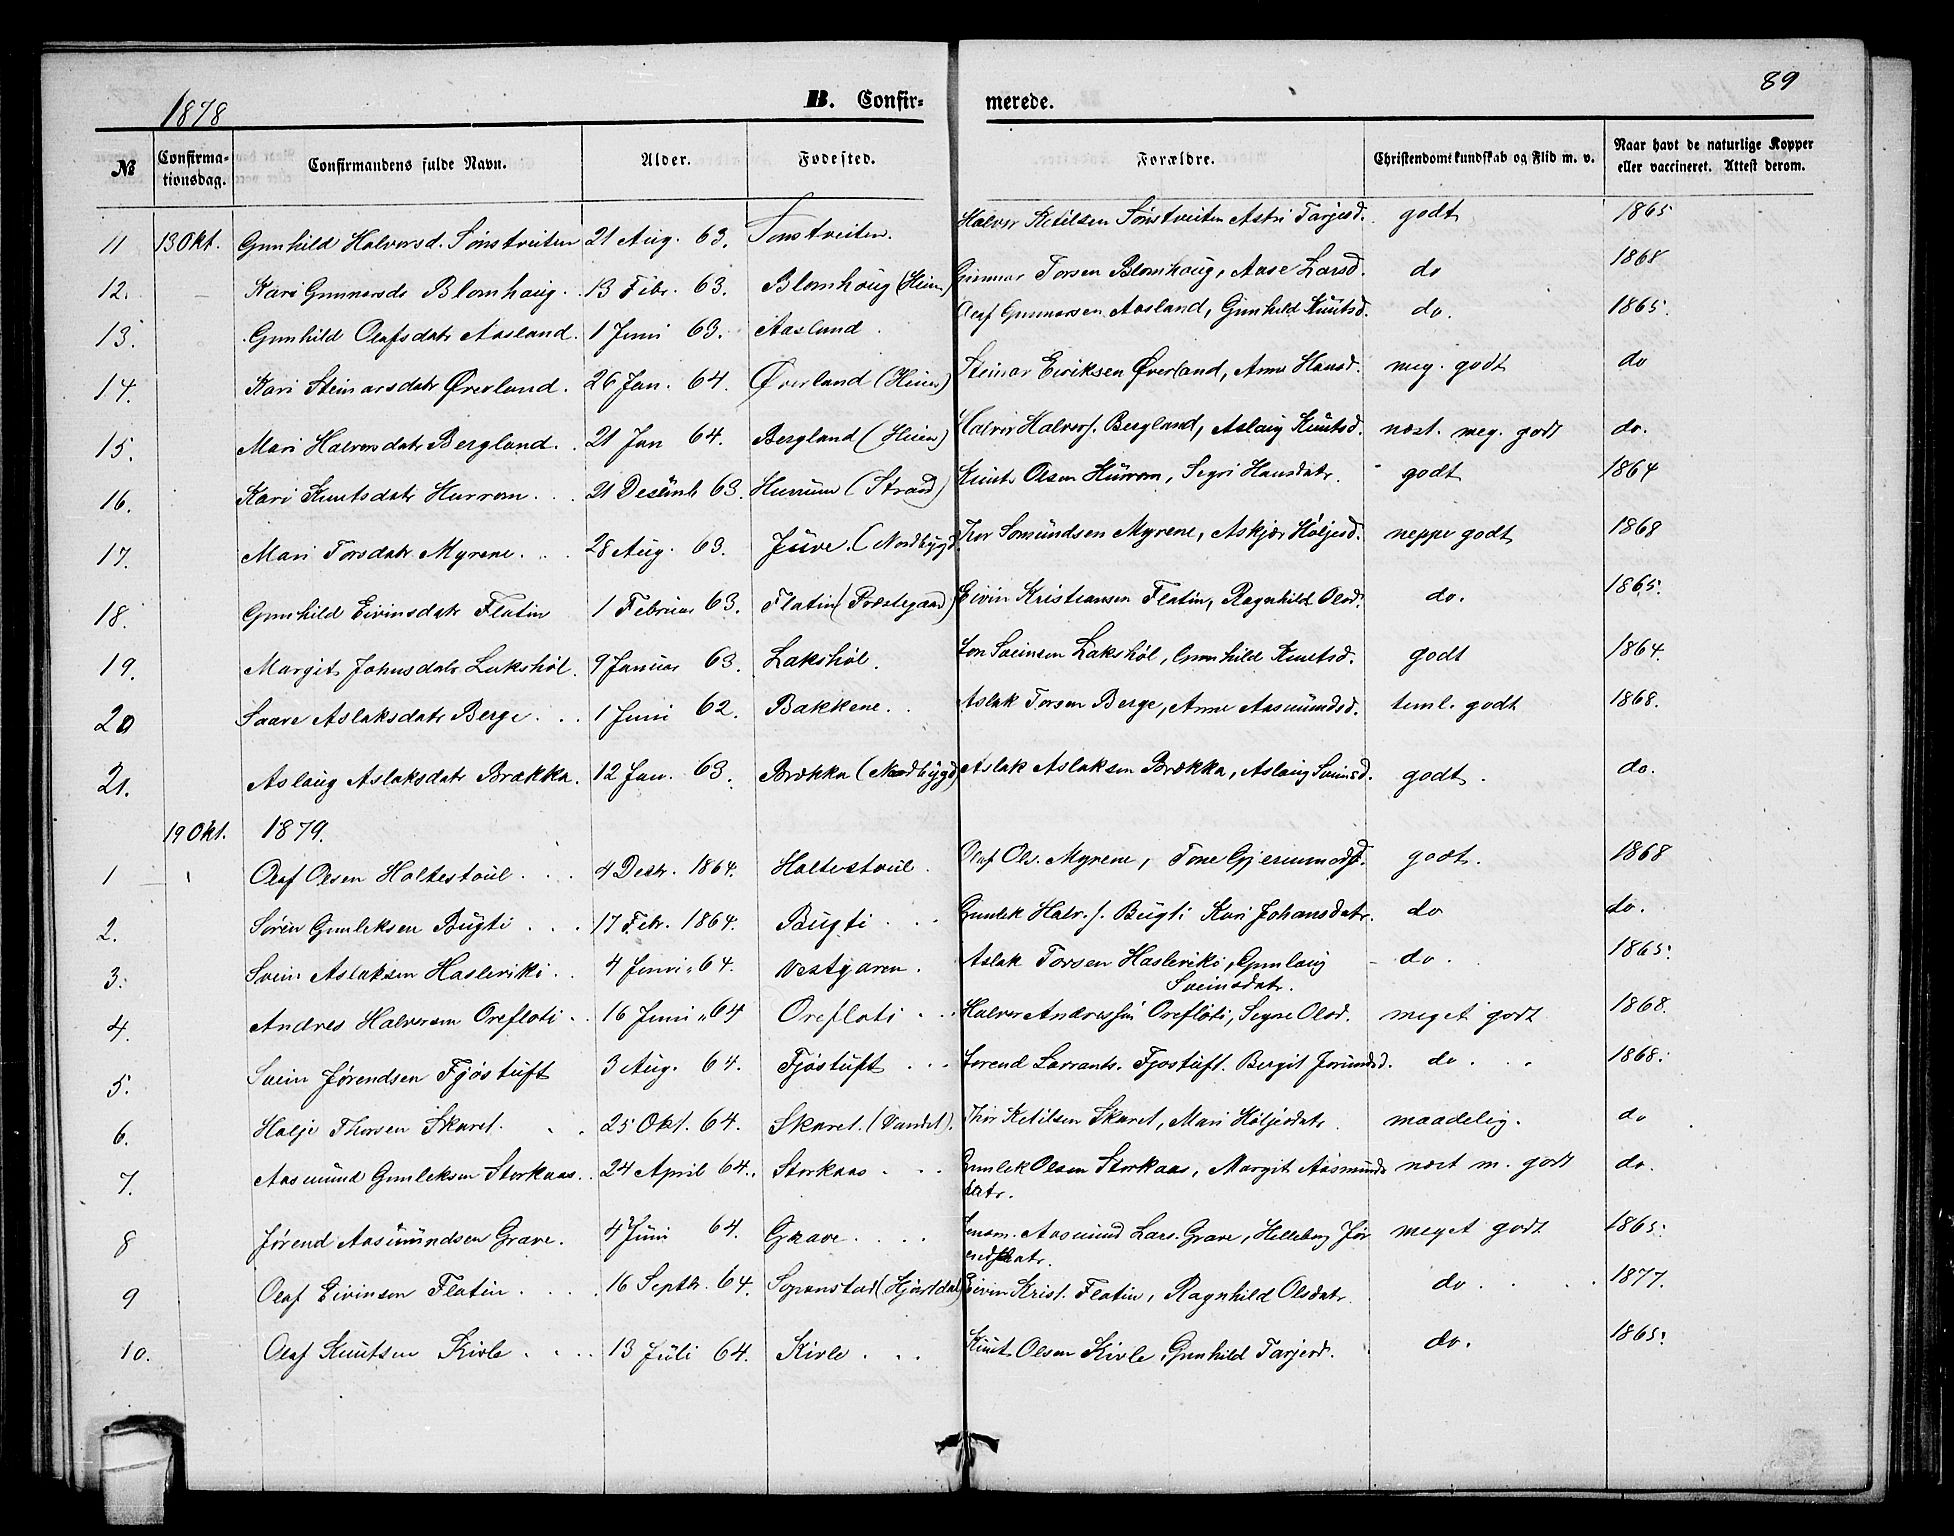 89
1878 B. Confir- merede.
№ Confirma-tionsdag. Confirmandens fulde Navn. Alder. Fødested. Forældre. Christendomskundskab og Flid m. v. Naar havt de naturlige Kopper eller vaccineret. Attest derom.
11 13 Okt. Gunhild Halvorsd. Sønstveiten 21 Aug. 63. Sønstveiten. Halvor Ketilsen Sønstveiten Astri Tarjeid. godt 1865
12. Kari Gunnarsdr Blomhaug. 13 Febr. 63. Blomhoug (Heien) Gunnar Torsen Blomhaug, Aase Larsd. do 1868
13. Gunhild Olafsdatr Aasland. 1 Juni 63. Aasland. Olaf Gunnarsen Aasland, Gunhild Knutsd. do. 1865.
14. Kari Steinarsdatr Øverland. 26 Jan. 64. Øverland (Heien) Steinar Eiriksen Øverland, Anne Hansd. meg. godt do
15. Mari Halvorsdatr Bergland. 21 Jan 64. Bergland (Heien) Halvor Halvors. Bergland, Aslaug Knutsd. næst. meg. godt do.
16. Kari Knutsdatr Hurrom. 21 Desemb 63. Hurrum (Strand) Knut Olsen Hurrom, Segri Hansdatr. godt 1864
17. Mari Torsdatr Myrene. 28 Aug. 63. Juve. (Nordbygd. Tor Somundsen Myrene, Askjær Høljesd. neppe godt 1868
18. Gunhild Eivinsdatr Flatin 1 Februar 63. Flatin (Prestegaard) Eivin Kristiansen Flatin, Ragnhild Olsd. do. 1865.
19. Margit Johnsdatr Lakshøl. 9 Januar 63. Lakshøl. Jon Sveinsen Lakshøl, Gunhild Knutsd. godt 1864.
20 Saave Aslaksdatr Berge. 1 Juni 62. Bakkene. Aslak Torsen Berge, Anne Aasmundsd. teml. godt 1868.
21. Aslaug Aslaksdatr Brækka. 12 Jan. 63. Brækka (Nordbygd) Aslak Aslaksen Brækka, Aslaug Sveinsd. godt. do.
19 Okt. 1879.
1 Olaf Olsen Haltestoul. 4 Decbr. 1864. Haltestoul. Olaf Ols. Myrene, Tone Gjermundsd. godt. 1868
2. Søren Gunleksen Bugti. 17 Febr. 1864. Bugti Gunlek Halv. s. Bugti Kari Johansdatr. do do.
3. Svein Aslaksen Hasleviki. 4 Juni " 64. Vestgaren. Aslak Torsen Hasleviki, Gunlaug
Sveinsdatr. do. 1865.
4. Andres Halvorsen Orefloti. 16 Juni " 64 Orefloti. Halvor Andressøn Orefloti, Segne Olsd. meget godt 1868.
5. Svein Jørendsen Fjøstuft 3 Aug. 64. Fjøstuft Jørend Larrants. Fjøstuft. Bergit Jørundsd. do. 1868.
6. Halje Thorsen Skaret. 25 Okt. 64. Skaret. (Vandet). Thor Ketilsen Skaret, Mari Høljesdatr maadelig. do
7. Aasmund Gunleksen Storkaas. 24 April 64. Storkaas Gunlek Olsen Storkaas, Margit Aasmunds
datr. næst m. godt do.
8 Jørend Aasmundsen Grave. 4 Juni 64. Grave. Aasmund Lars. Grave, Helleborg Jør
endsdatr. meget godt 1865.
9 Olaf Eivinson Flatin. 16 Septbr. 64. Sopanstad (Hjartdal) Eivin Krist. Flatin, Ragnhild Olsdatr. do. 1877.
10. Olaf Knutsen Kivle. 13 Juli 64. Kivle. Knut Olsen Kivle, Gunhild Tarjesd. do. 1865.